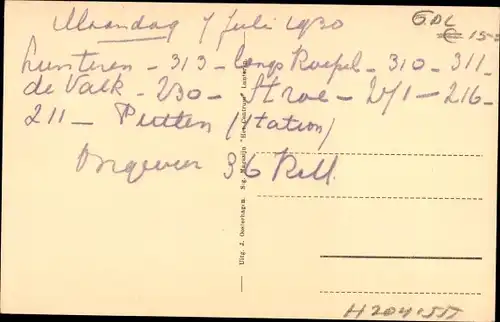 Maandag 7 Juli 1930
GDL
€ 15-
Lunteren - 313 - langs Koepel - 310 - 311 -
de Valk - 230 - Stroe - 271 - 216 -
211 - Putten (station)
Ongeveer 36 K.M.
Uitg. J. Oosterhagen. S.g. Magazijn "Het Centrum" Lunteren